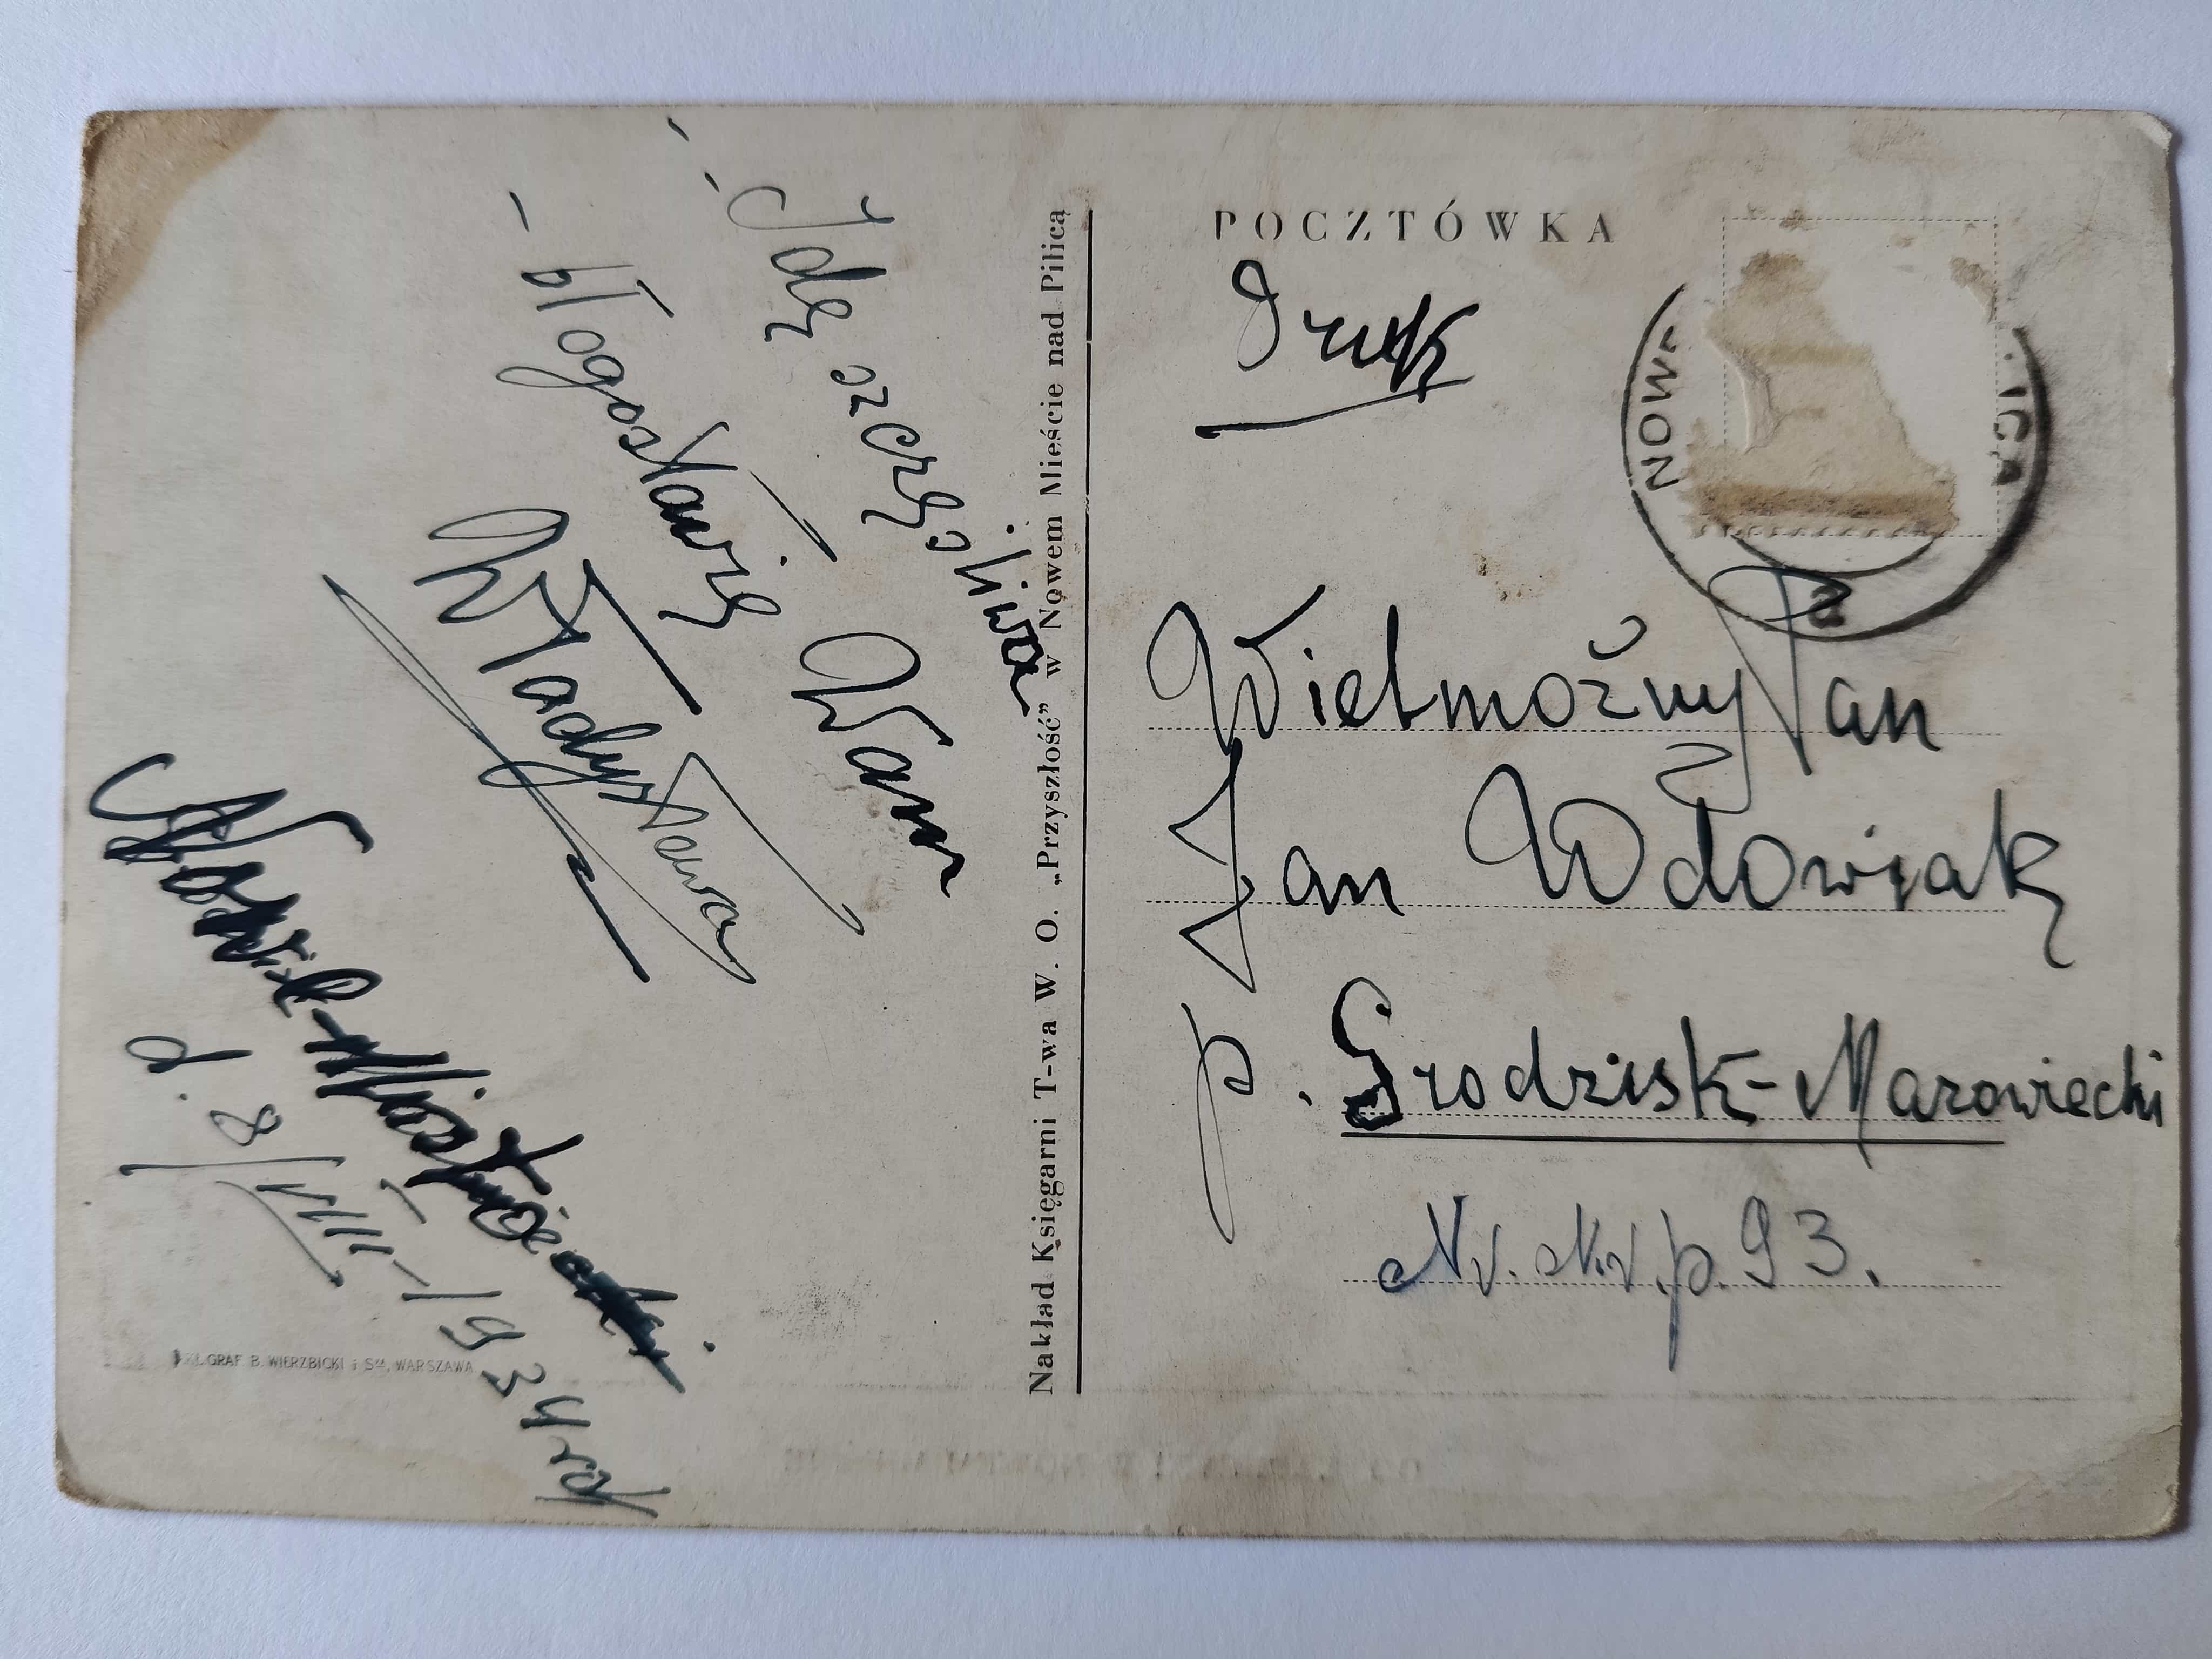 POCZTÓWKA
Druk
NOWE
ICA
Wielmożny Pan
Jan Wdowiak
p. Grodzisk-Mazowiecki
Nakład Księgarni T-wa W. O. „Przyszłość” w Nowem Mieście nad Pilicą
Idę szczęśliwa
błogosławię Wam
Władysława
d. 8/VIII-1934 rok
GRAF B. WIERZBICKI i S-ka, WARSZAWA